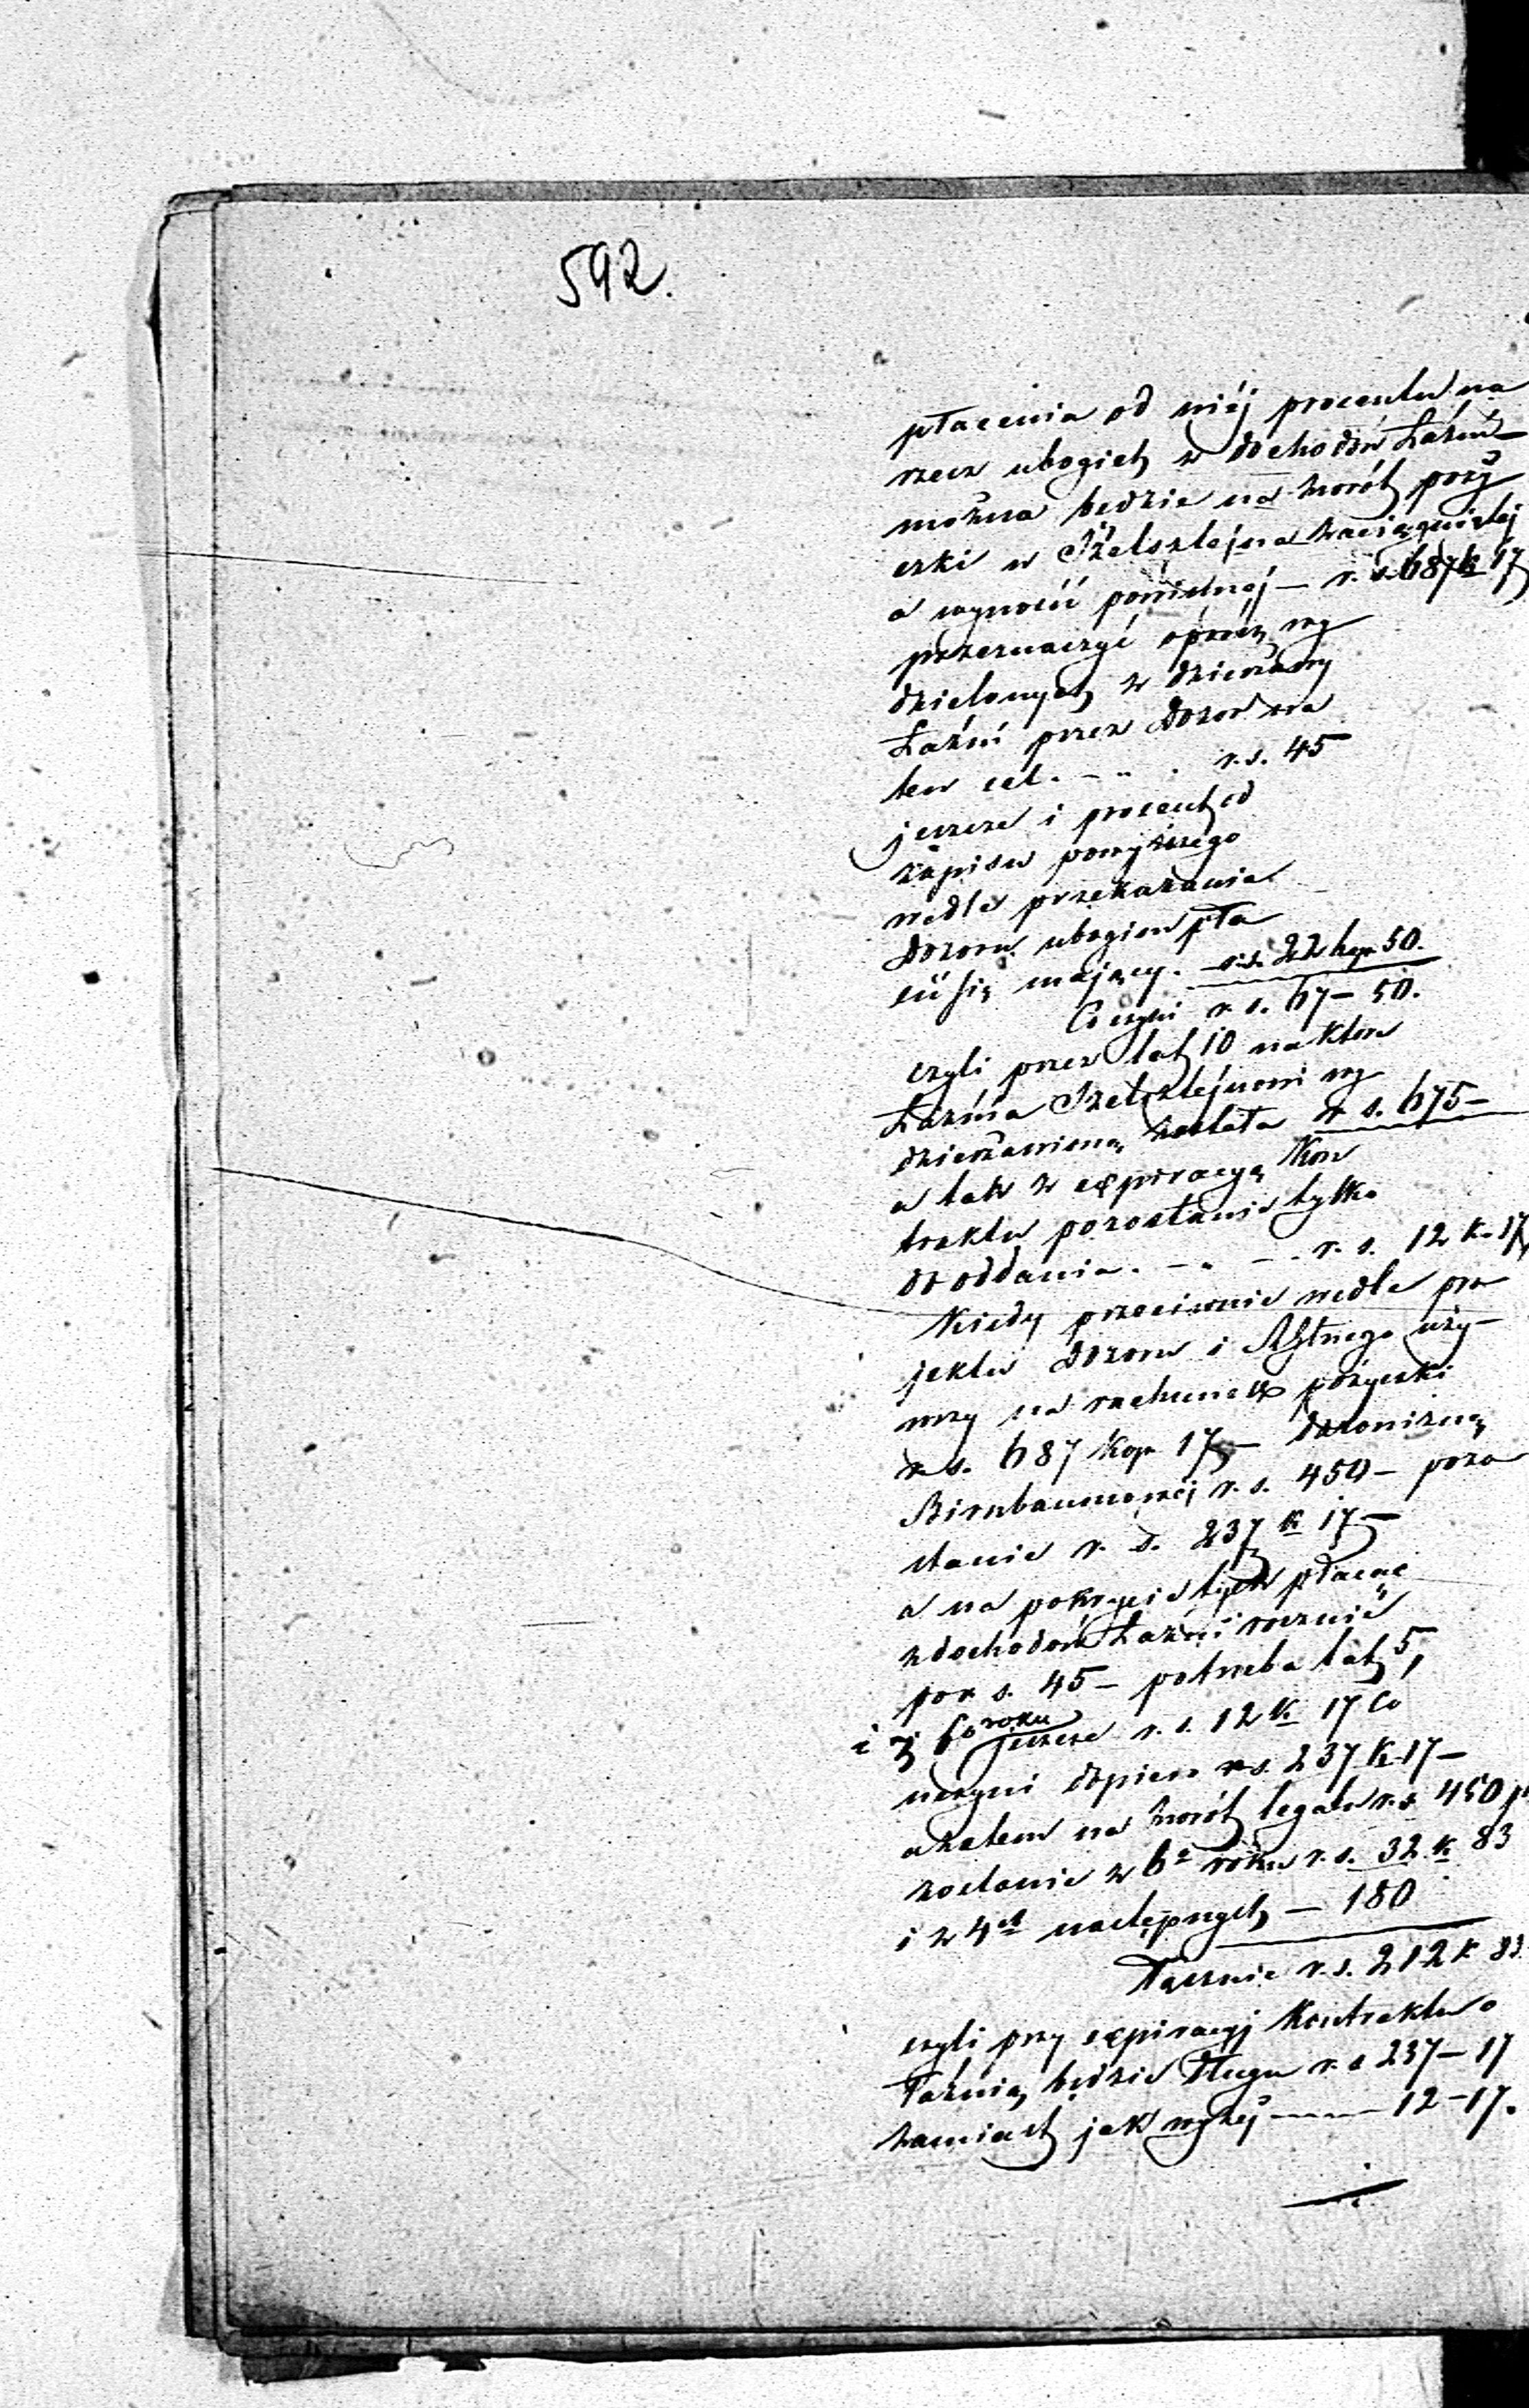 592.
płacenia od niéj procentu na
rzecz ubogich z dochodów Łaźni
można będzie na zwrót poży
czki u Szelsztejna zaciągniętej
a wynosić powinnej — r. s. 687 k 17
przeznaczyć oprócz wy
dzielonych z dzierżawy
Łaźni przez Dozór na
ten cel . - „ . r. s. 45
jeszcze i procent od
zapisu powyższego
wedle przekazania
Dozoru ubogim pła
cić się mający. - r. s. 22 kop. 50.
Co czyni r. s. 67 – 50.
czyli przez lat 10 na które
Łaźnia Szelsztejnowi wy
dzierżawioną została r. s. 675 –
a tak z expiracyą Kon
traktu pozostanie tylko
do oddania . - „ - . r. s. 12 k. 17
Kiedy przeciwnie wedle pro
jektu Dozoru i użу-
wszy na rachunek pożyczki
r. s. 687 kop 17 – darowizną
Birnbaumowéj r. s. 450 – pozo
stanie r. s. 237 k 17 –
a na pokrycie tych płacąc
z dochodów Łaźni rocznie
po r. s. 45 – potrzeba lat 5,
i z 6o roku jeszcze r. s. 12 k 17 Co
uczyni dopiero r. s. 237 k 17 –
a zatem na zwrót legatu r. s. 450 po
zostanie z 6o roku r. s. 32 k 83
i z 4ch następnych – 180
Łącznie r. s. 212 k 83
czyli przy expiracyj Kontraktu o
Łaźnią, będzie długu r. s. 237 – 17
zamiast jak wyżej – – – 12 – 17.